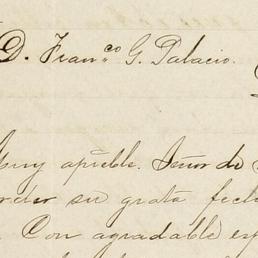 D. Fran.co G. Palacio.
Muy apreble. Señor de
su grata fech
Con agradable esp